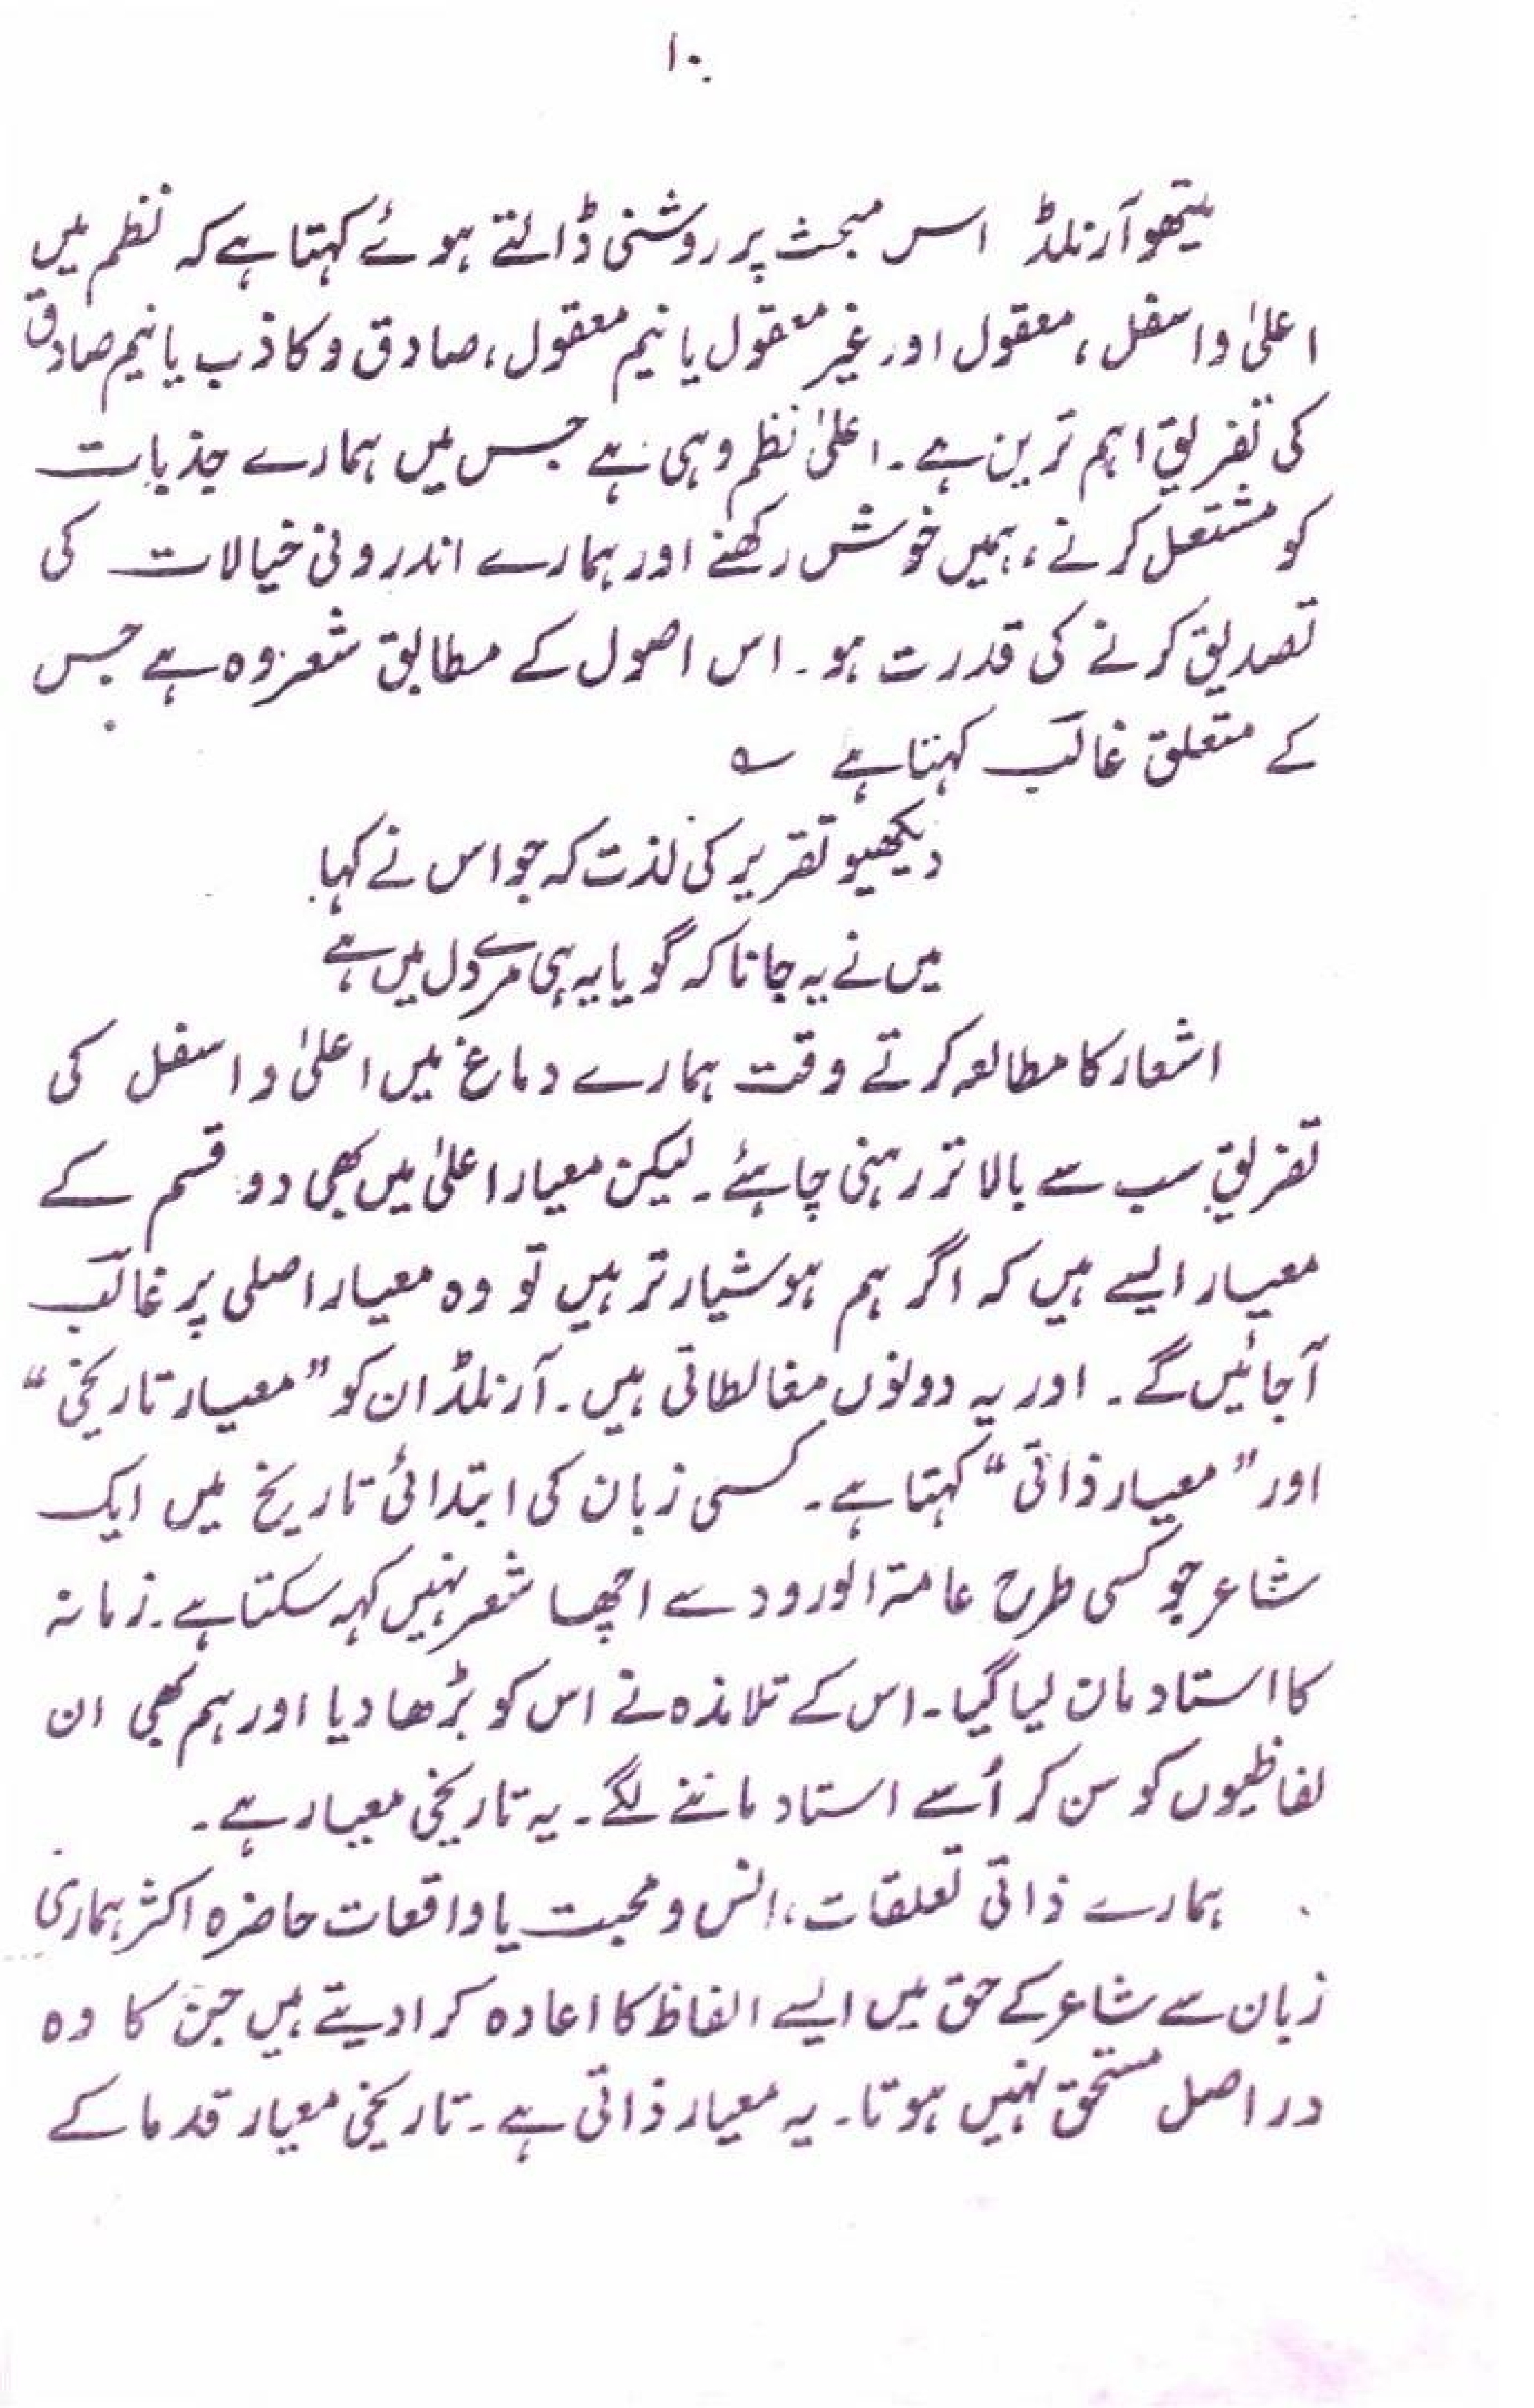 ۱۰
میتھو آرنلڈ اس مبحث پر روشنی ڈالتے ہوئے کہتا ہے کہ نظم میں
اعلیٰ و اسفل، معقول اور غیر معقول یا نیم معقول، صادق و کاذب یا نیم صادق
کی تفریق اہم ترین ہے۔ اعلیٰ نظم وہی ہے جس میں ہمارے جذبات
کو مشتعل کرنے، ہمیں خوش رکھنے اور ہمارے اندرونی خیالات کی
تصدیق کرنے کی قدرت ہو۔ اس اصول کے مطابق شعر وہ ہے جس
کے متعلق غالبؔ کہتا ہے ؎
دیکھیو تقریر کی لذت کہ جو اس نے کہا
میں نے یہ جانا کہ گویا یہ ہی مرے دل میں ہے
اشعار کا مطالعہ کرتے وقت ہمارے دماغ میں اعلیٰ و اسفل کی
تفریق سب سے بالاتر رہنی چاہئے۔ لیکن معیار اعلیٰ میں بھی دو قسم کے
معیار ایسے ہیں کہ اگر ہم ہوشیار تر ہیں تو وہ معیار اصلی پر غالبؔ
آجائیں گے۔ اور یہ دونوں مغالطاتی ہیں۔ آرنلڈ ان کو ”معیار تاریخی“
اور ”معیار ذاتی“ کہتا ہے۔ کسی زبان کی ابتدائی تاریخ میں ایک
شاعر جو کسی طرح عامتہ الورود سے اچھا شعر نہیں کہہ سکتا ہے۔ زمانہ
کا استاد مان لیا گیا۔ اس کے تلامذہ نے اس کو بڑھا دیا اور ہم بھی ان
لفاظیوں کو سن کر اُسے استاد ماننے لگے۔ یہ تاریخی معیار ہے۔
ہمارے ذاتی تعلقات، انس و محبت یا واقعات حاضرہ اکثر ہماری
زبان سے شاعر کے حق میں ایسے الفاظ کا اعادہ کرا دیتے ہیں جن کا وہ
در اصل مستحق نہیں ہوتا۔ یہ معیار ذاتی ہے۔ تاریخی معیار قدما کے